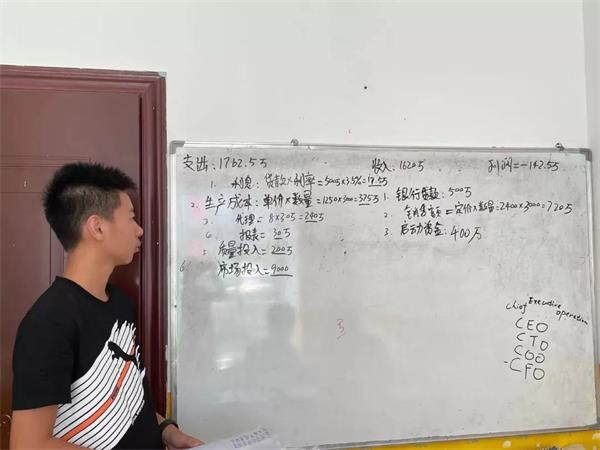 支出：1762.5万 收入：1620万 利润=-142.5万
1. 利息：贷款×利率=500万×3.5%=17.5万
2. 生产成本：单价×数量=1250×3000=375万
3. 代理=8×30万=240万
6. 报表=30万
5. 质量投入=200万
6 市场投入=9000
1. 银行贷款：500万
2. =定价×数量=2400×3000=720万
3. 启动资金：400万
3
chief Executive
operation
CEO
CTO
COO
-CFO